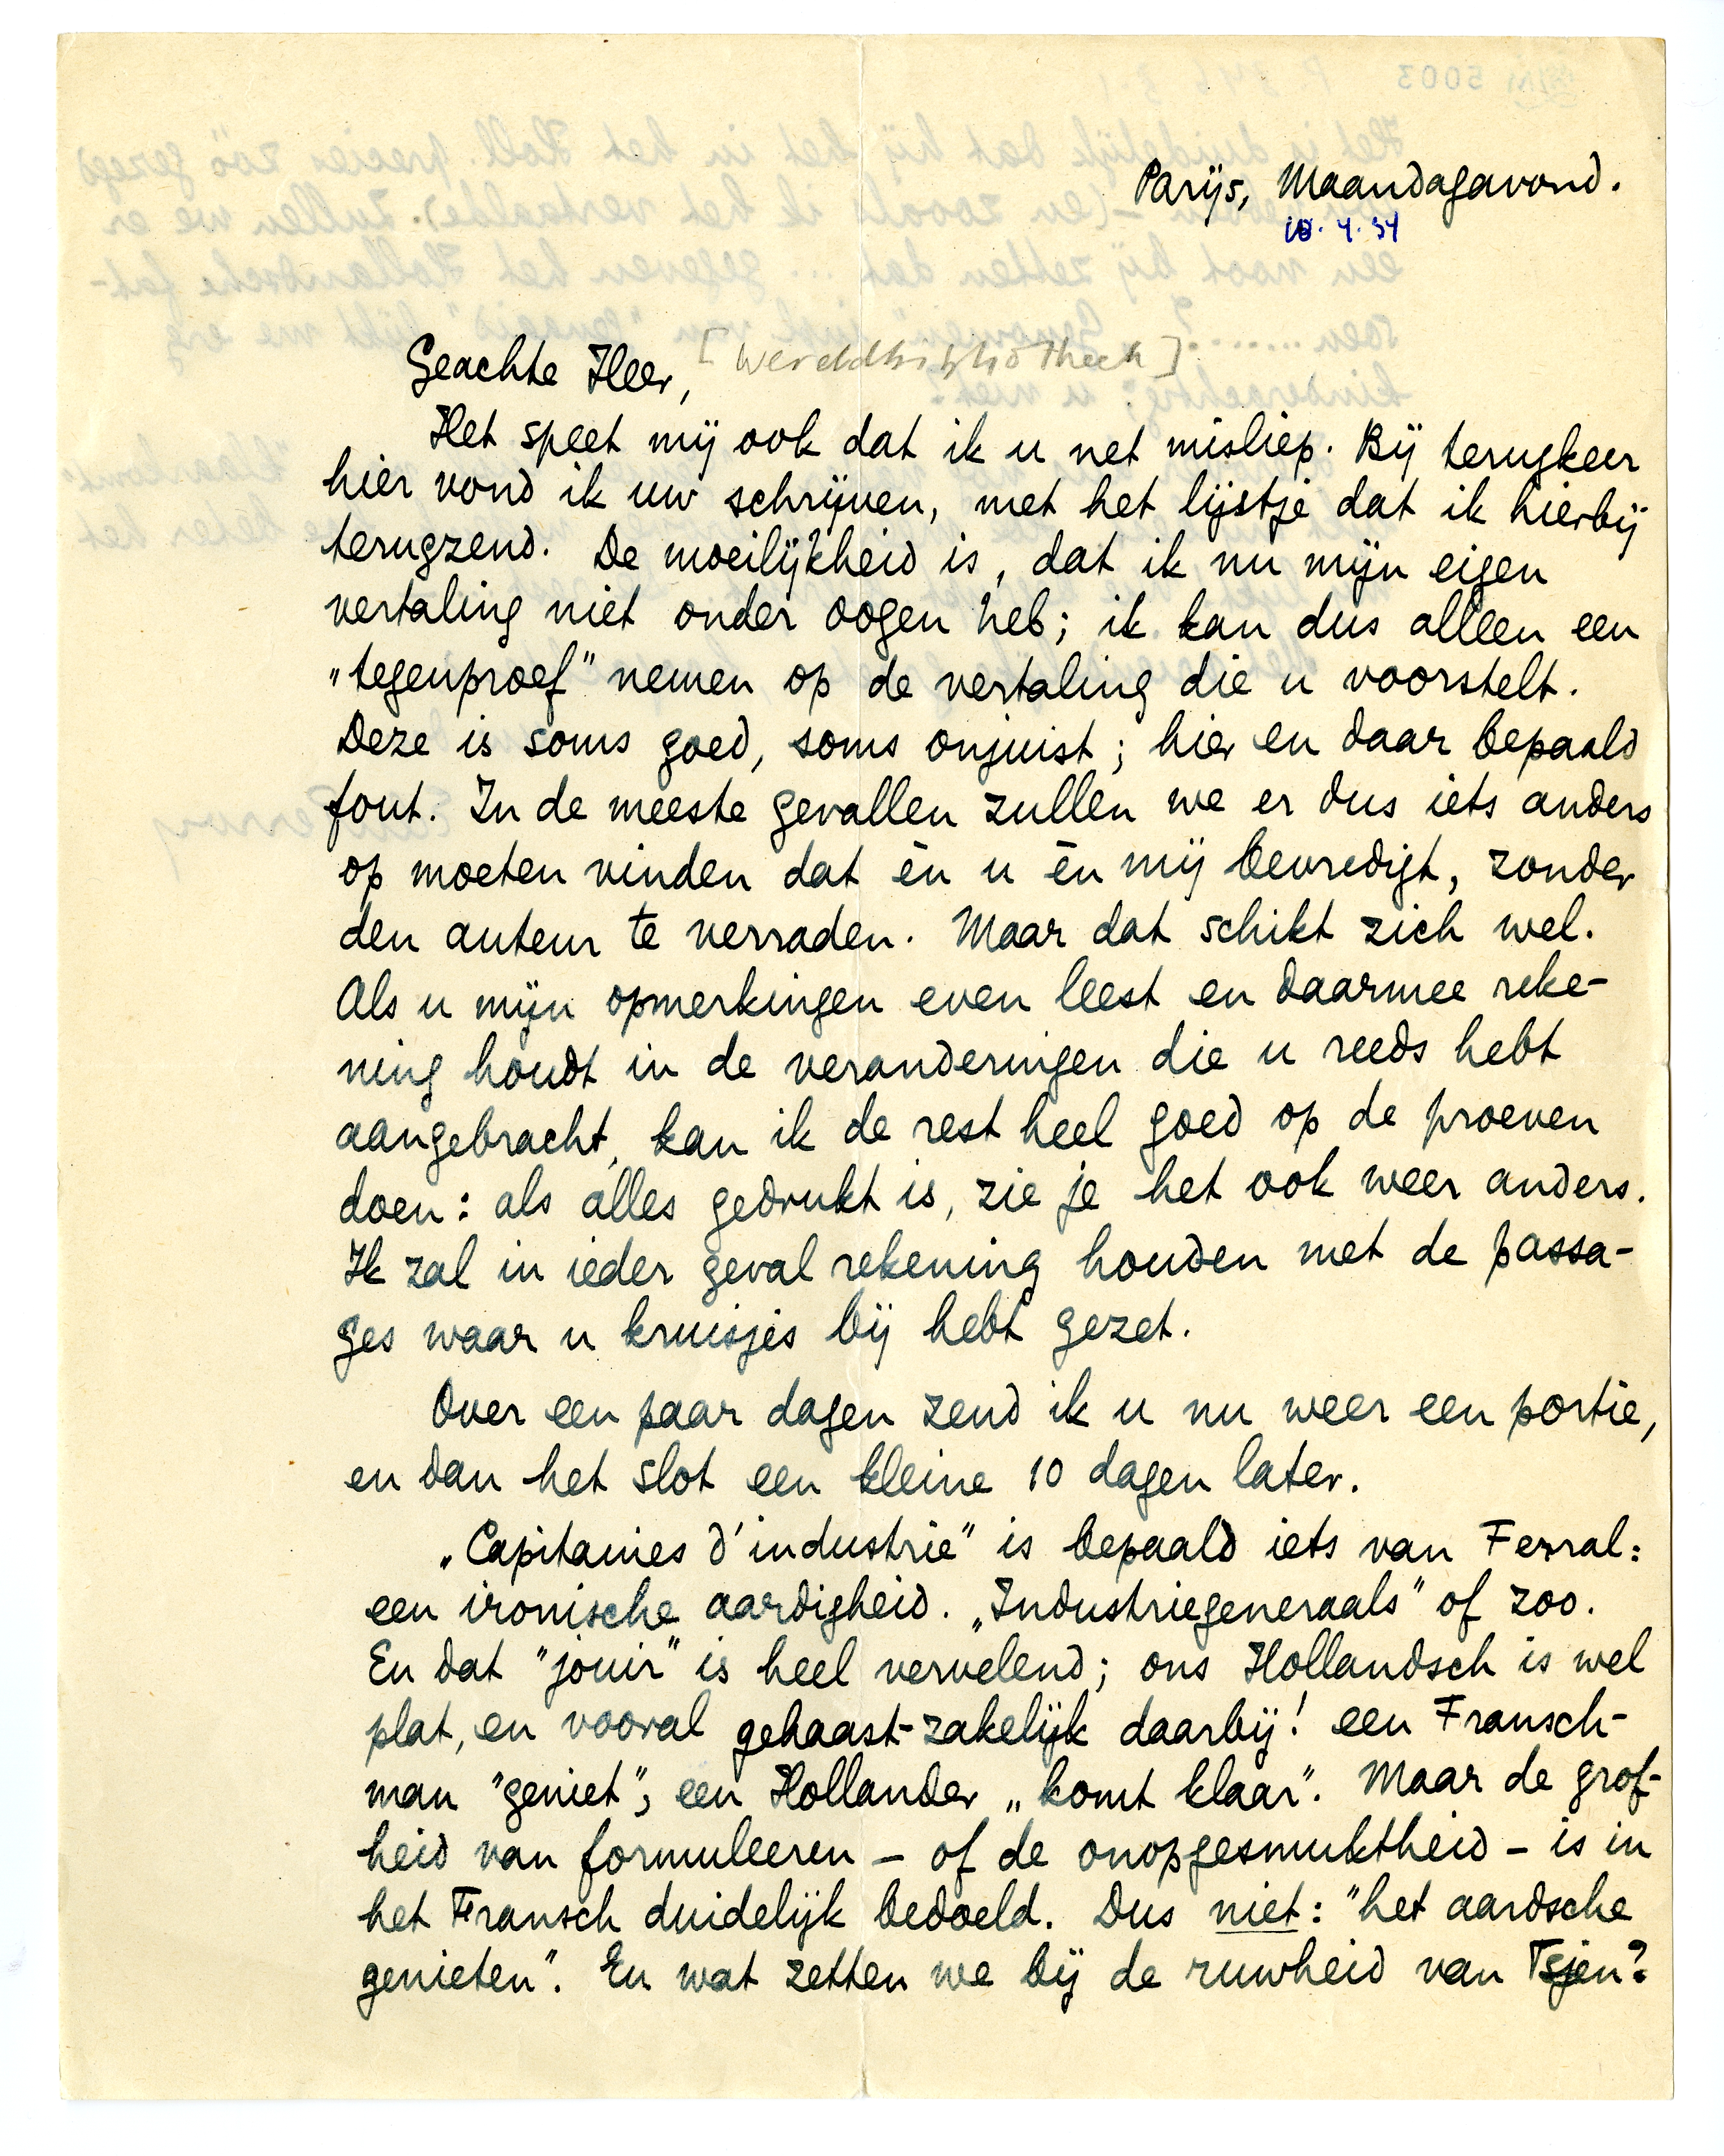 Parijs, Maandagavond.
Geachte Heer, [Wereldbibliotheek]
Het speet mij ook dat ik u net misliep. Bij terugkeer
hier vond ik uw schrijven, met het lijstje dat ik hierbij
terugzend. De moeilijkheid is, dat ik nu mijn eigen
vertaling niet onder oogen heb; ik kan dus alleen een
„tegenproef" nemen op de vertaling die u voorstelt.
Deze is soms goed, soms onjuist; hier en daar bepaald
fout. In de meeste gevallen zullen we er dus iets anders
op moeten vinden dat èn u èn mij bevredigt, zonder
den auteur te verraden. Maar dat schikt zich wel.
Als u mijn opmerkingen even leest en daarmee reke-
ning houdt in de veranderingen die u reeds hebt
aangebracht, kan ik de rest heel goed op de proeven
doen: als alles gedrukt is, zie je het ook weer anders.
Ik zal in ieder geval rekening houden met de passa-
ges waar u kruisjes bij hebt gezet.
Over een paar dagen zend ik u nu weer een portie,
en dan het slot een kleine 10 dagen later.
„Capitanies d'industrie" is bepaald iets van Ferral:
een ironische aardigheid. „Industriegeneraals" of zoo.
En dat "jouir" is heel vervelend; ons Hollandsch is wel
plat, en vooral gehaast-zakelijk daarbij! een Fransch-
man "geniet", een Hollander „komt klaar". Maar de grof-
heid van formuleeren – of de onopgesmuktheid – is in
het Fransch duidelijk bedoeld. Dus niet: "het aardsche
genieten". En wat zetten we bij de ruwheid van Tsjen?